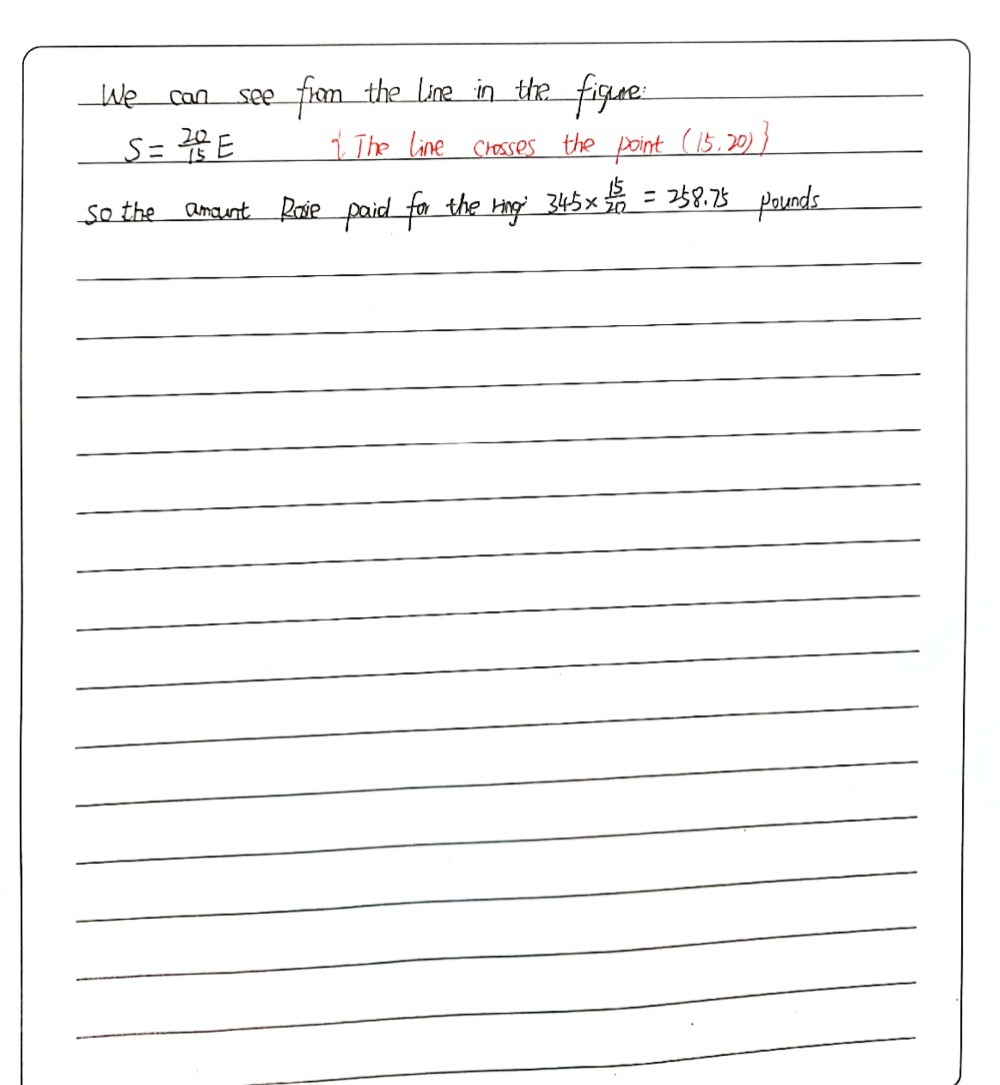 We can see from the line in the figure:
S = 20/15 E {The line crosses the point (15.20)}
so the amount Rosie paid for the ring: 345 × 15/20 = 258.75 pounds